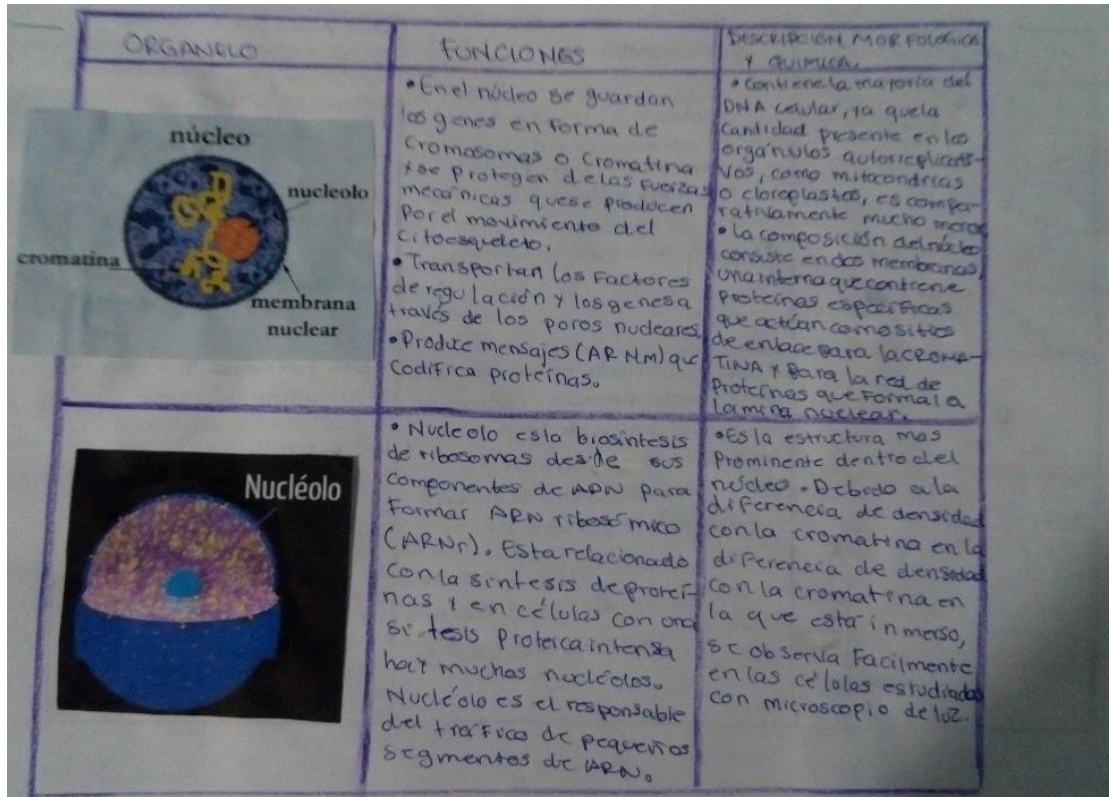 ORGANELO
FUNCIONES
DESCRIPCION MORFOLOGICA
Y QUIMICA.
núcleo
nucleolo
cromatina
membrana
nuclear
• En el núcleo se guardan
los genes en forma de
Cromosomas o Cromatina
y se protegen de las fuerzas
mecánicas que se producen
por el movimiento del
citoesqueleto.
• Transportan los factores
de regulación y los genes a
través de los poros nucleares.
• Produce mensajes (ARNm) que
codifica proteínas.
• Contiene la mayoría del
DNA celular, ya que la
cantidad presente en los
orgánulos autorreplicati-
vos, como mitocondrias
o cloroplastos, es compa-
rativamente mucho menor
• La composición del núcleo
consiste en dos membranas,
una interna que contiene
proteínas específicas
que actúan como sitios
de enlace para la CROMA-
TINA y para la red de
Proteínas que forma la
lamina nuclear.
Nucléolo
• Nucleolo es la biosíntesis
de ribosomas desde sus
componentes de ADN para
formar ARN ribosómico
(ARNr). Esta relacionado
con la síntesis de proteí-
nas y en células con una
síntesis proteica intensa
hay muchos nucléolos.
Nucléolo es el responsable
del tráfico de pequeños
segmentos de ARN.
• Es la estructura mas
Prominente dentro del
núcleo. Debido a la
diferencia de densidad
con la cromatina en la
diferencia de densidad
con la cromatina en
la que está inmerso,
se observa facilmente
en las células estudiadas
con microscopio de luz.